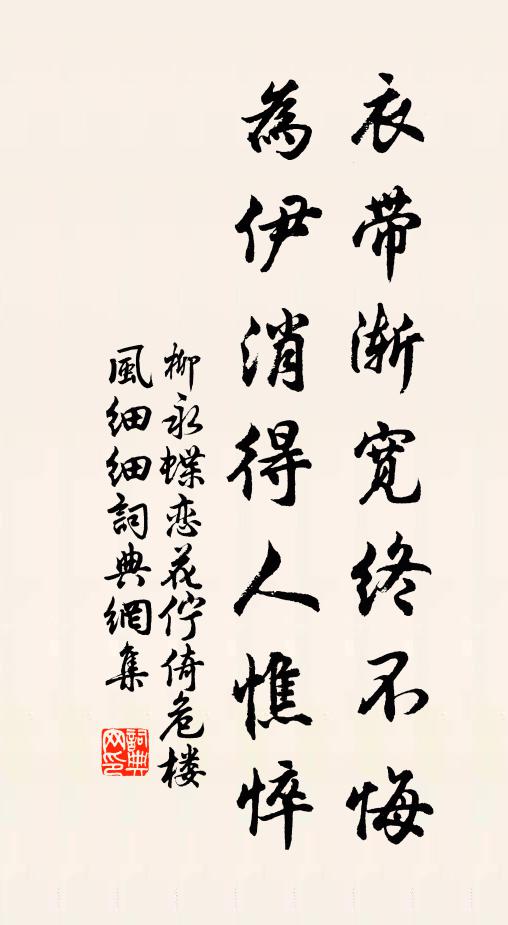 衣带渐宽终不悔
為伊消得人憔悴
柳永蝶恋花佇倚危楼
風细细詞典網集
詞典
网印